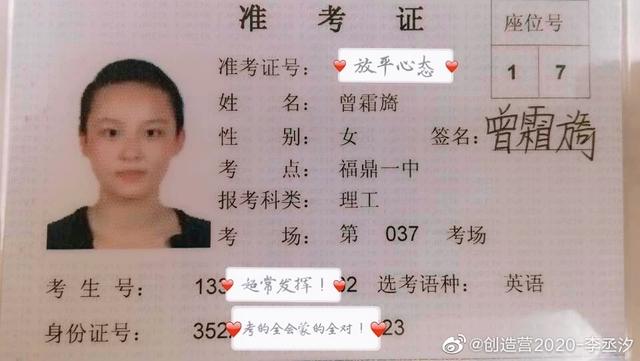 准考证
座位号
1 7
准考证号：放平心态
姓 名：曾霜旖
性 别：女 签名：曾霜旖
考 点：福鼎一中
报考科类：理工
考 场：第 037 考场
考 生 号：133 超常发挥！ 62 选考语种：英语
身份证号：352 考的全会蒙的全对！ 23
@创造营2020-李丞汐